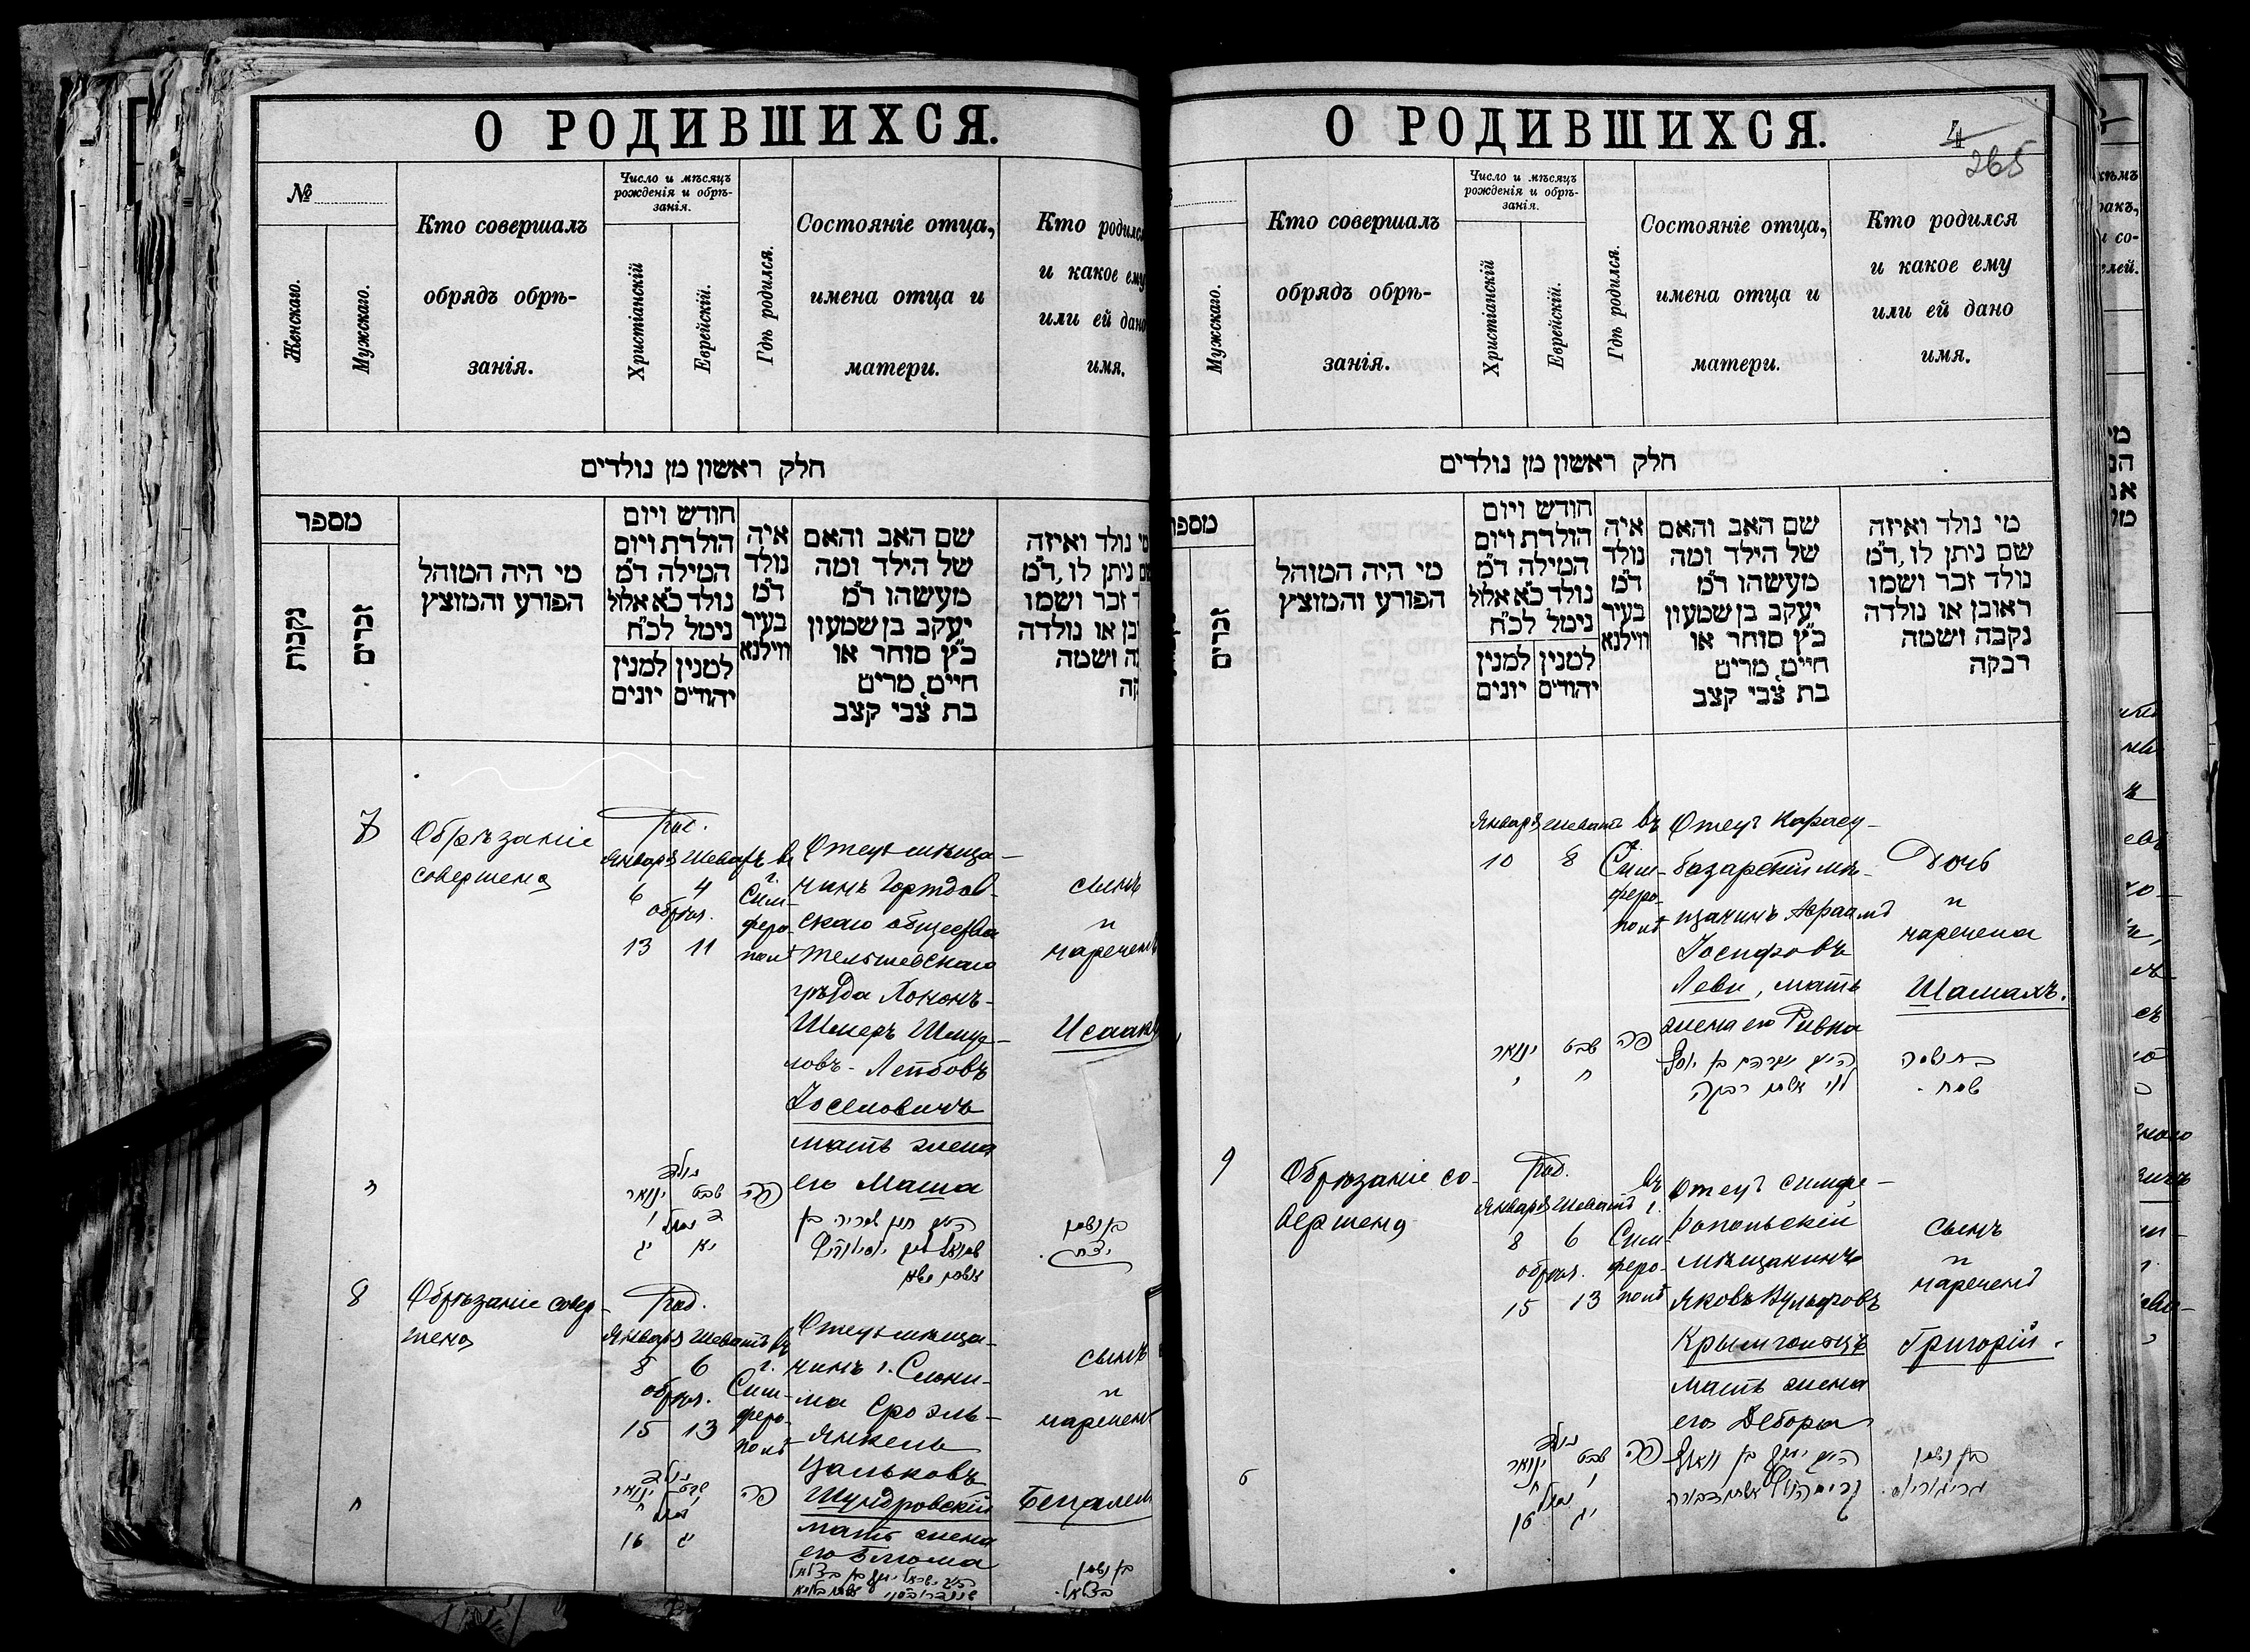 О РОДИВШИХСЯ.
№
Женскаго.
Мужскаго.
Кто совершалъ
обрядъ обрѣ-
занія.
Число и мѣсяцъ
рожденія и обрѣ-
занія.
Христіанскій
Еврейскій.
Гдѣ родился.
Состояніе отца,
имена отца и
матери.
Кто родился
и какое ему
или ей дано
имя.
חלק ראשון מן נולדים
מספר
נקבות
זכרים
מי היה המוהל
הפורע והמוצץ
חודש ויום
הולדת ויום
המילה ד״מ
נולד כ״א אלול
נימל לכ״ח
למנין
יונים
למנין
יהודים
איה
נולד
ד״מ
בעיר
ווילנא
שם האב והאם
של הילד ומה
מעשהו ד״מ
יעקב בן שמעון
כ״ץ סוחר או
חיים, מרים
בת צבי קצב
מי נולד ואיזה
שם ניתן לו, ד״מ
זכר ושמו
או נולדה
ושמה
7
Обрѣзаніе
совершено
Род.
Января Шеватъ
6 4
обрѣз.
13 11
въ
г.
Сим-
феро-
полѣ
Отецъ мѣща-
нинъ
скаго общества
Тельшевскаго
Шмуй-
ловъ-Лейбовъ
Іоселовичъ
мать жена
его Маша
сынъ
и
нареченъ
Исаакъ
ינואר שבט
פה
יג יא
בן ושמו
יצחק.
8
Обрѣзаніе совер-
шено
Род.
Января Шеватъ въ
8 6 г.
обрѣз. Сим-
феро-
15 13 полѣ
Отецъ мѣща-
нинъ г. Слони-
ма Сроэль-
Янкель
Цальковъ
Шундровскій
мать жена
его Блюма
сынъ
и
нареченъ
Бецалем
ינואר שבט
פה
16 יג
בן ושמו
בצלאל.
О РОДИВШИХСЯ.
4
265
Мужскаго.
Кто совершалъ
обрядъ обрѣ-
занія.
Число и мѣсяцъ
рожденія и обрѣ-
занія.
Христіанскій
Еврейскій.
Гдѣ родился.
Состояніе отца,
имена отца и
матери.
Кто родился
и какое ему
или ей дано
имя.
חלק ראשון מן נולדים
זכרים
מי היה המוהל
הפורע והמוצץ
חודש ויום
הולדת ויום
המילה ד״מ
נולד כ״א אלול
נימל לכ״ח
למנין
יונים
למנין
יהודים
איה
נולד
ד״מ
בעיר
ווילנא
שם האב והאם
של הילד ומה
מעשהו ד״מ
יעקב בן שמעון
כ״ץ סוחר או
חיים, מרים
בת צבי קצב
מי נולד ואיזה
שם ניתן לו, ד״מ
נולד זכר ושמו
ראובן או נולדה
נקבה ושמה
רבקה
Января Шеватъ
10 8
въ
г.
Сим-
феро-
полѣ
Отецъ Карасу-
базарскій мѣ-
щанинъ Авраамъ
Іосифовъ
Леви, мать
жена его Ривка
Дочь
и
наречена
Шамахъ.
ינואר שבט פה
י ח
אברהם בן יוסף
לוי אשתו רבקה
בת ושמה
שמח.
9
Обрѣзаніе со-
вершено
Род.
Января Шеватъ
8 6
обрѣз.
15 13
въ
г.
Сим-
феро-
полѣ
Отецъ симфе-
ропольскій
мѣщанинъ
Яковъ Вульфовъ
Крымгольцъ
мать жена
его Дебора
сынъ
и
нареченъ
Григорій.
ינואר שבט פה
16 יג
בן ושמו
גריגוריי.